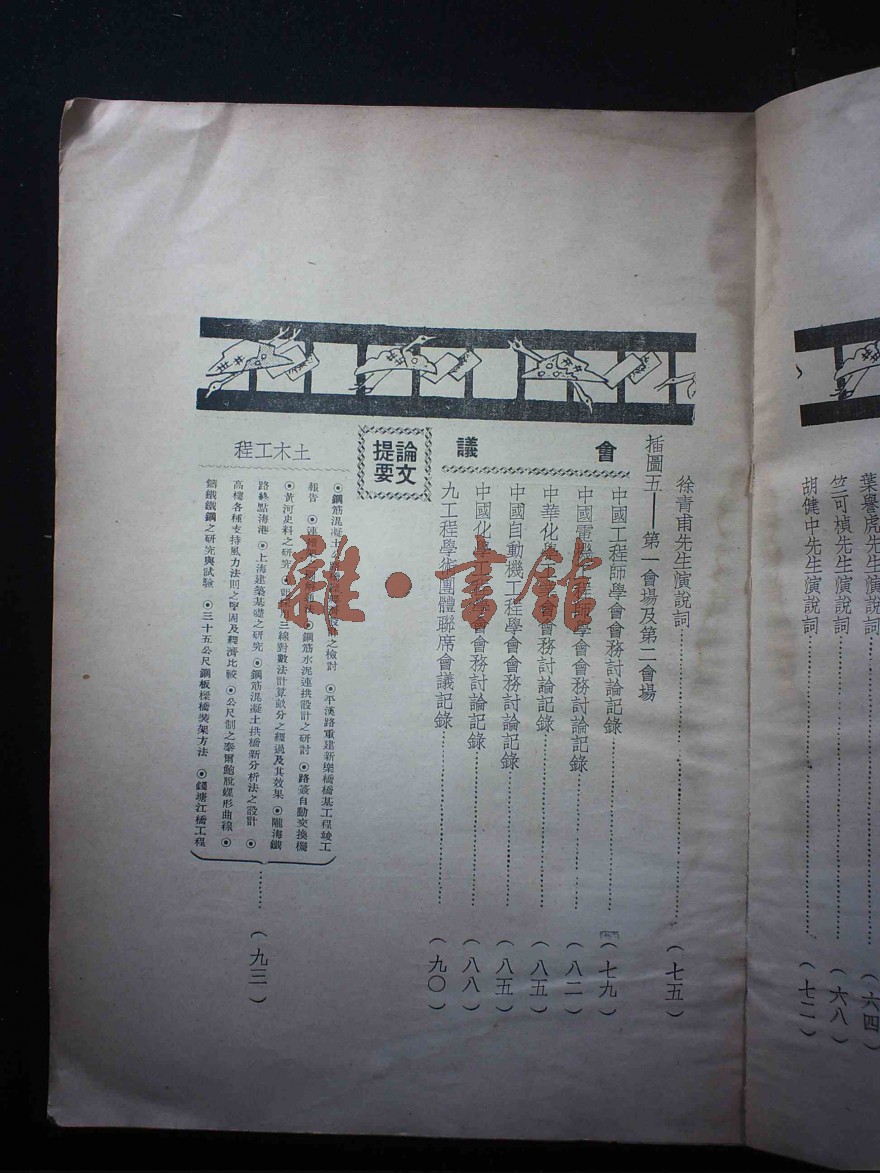 葉譽虎先生演說詞
(六四)
竺可楨先生演說詞
(六八)
胡健中先生演說詞
(七二)
徐青甫先生演說詞
(七五)
插圖五——第一會場及第二會場
會議
中國工程師學會會務討論記錄
(七九)
中國電機工程師學會會務討論記錄
(八二)
中華化學工業會會務討論記錄
(八五)
中國自動機工程學會會務討論記錄
(八五)
中國化學工程學會會務討論記錄
(八八)
九工程學術團體聯席會議記錄
(九〇)
論文提要
土木工程
◉鋼筋混凝土公 之檢討 ◉平漢路重建新樂橋橋基工程竣工
報告 ◉連 ◉鋼筋水泥連拱設計之研討 ◉路簽自動交換機
◉黃河史料之研究 ◉ 三線對數法計算畝分之經過及其效果 ◉隴海鐵
路終點海港 ◉上海建築基礎之研究 ◉鋼筋混凝土拱橋新分析法之設計 ◉
高樓各種支持風力法則之堅固及經濟比較 ◉公尺制之泰爾鮑脫螺形曲線 ◉
鑄鐵鐵鋼之研究與試驗 ◉三十五公尺鋼板樑橋裝架方法 ◉錢塘江橋工程
(九三)
雜·書館